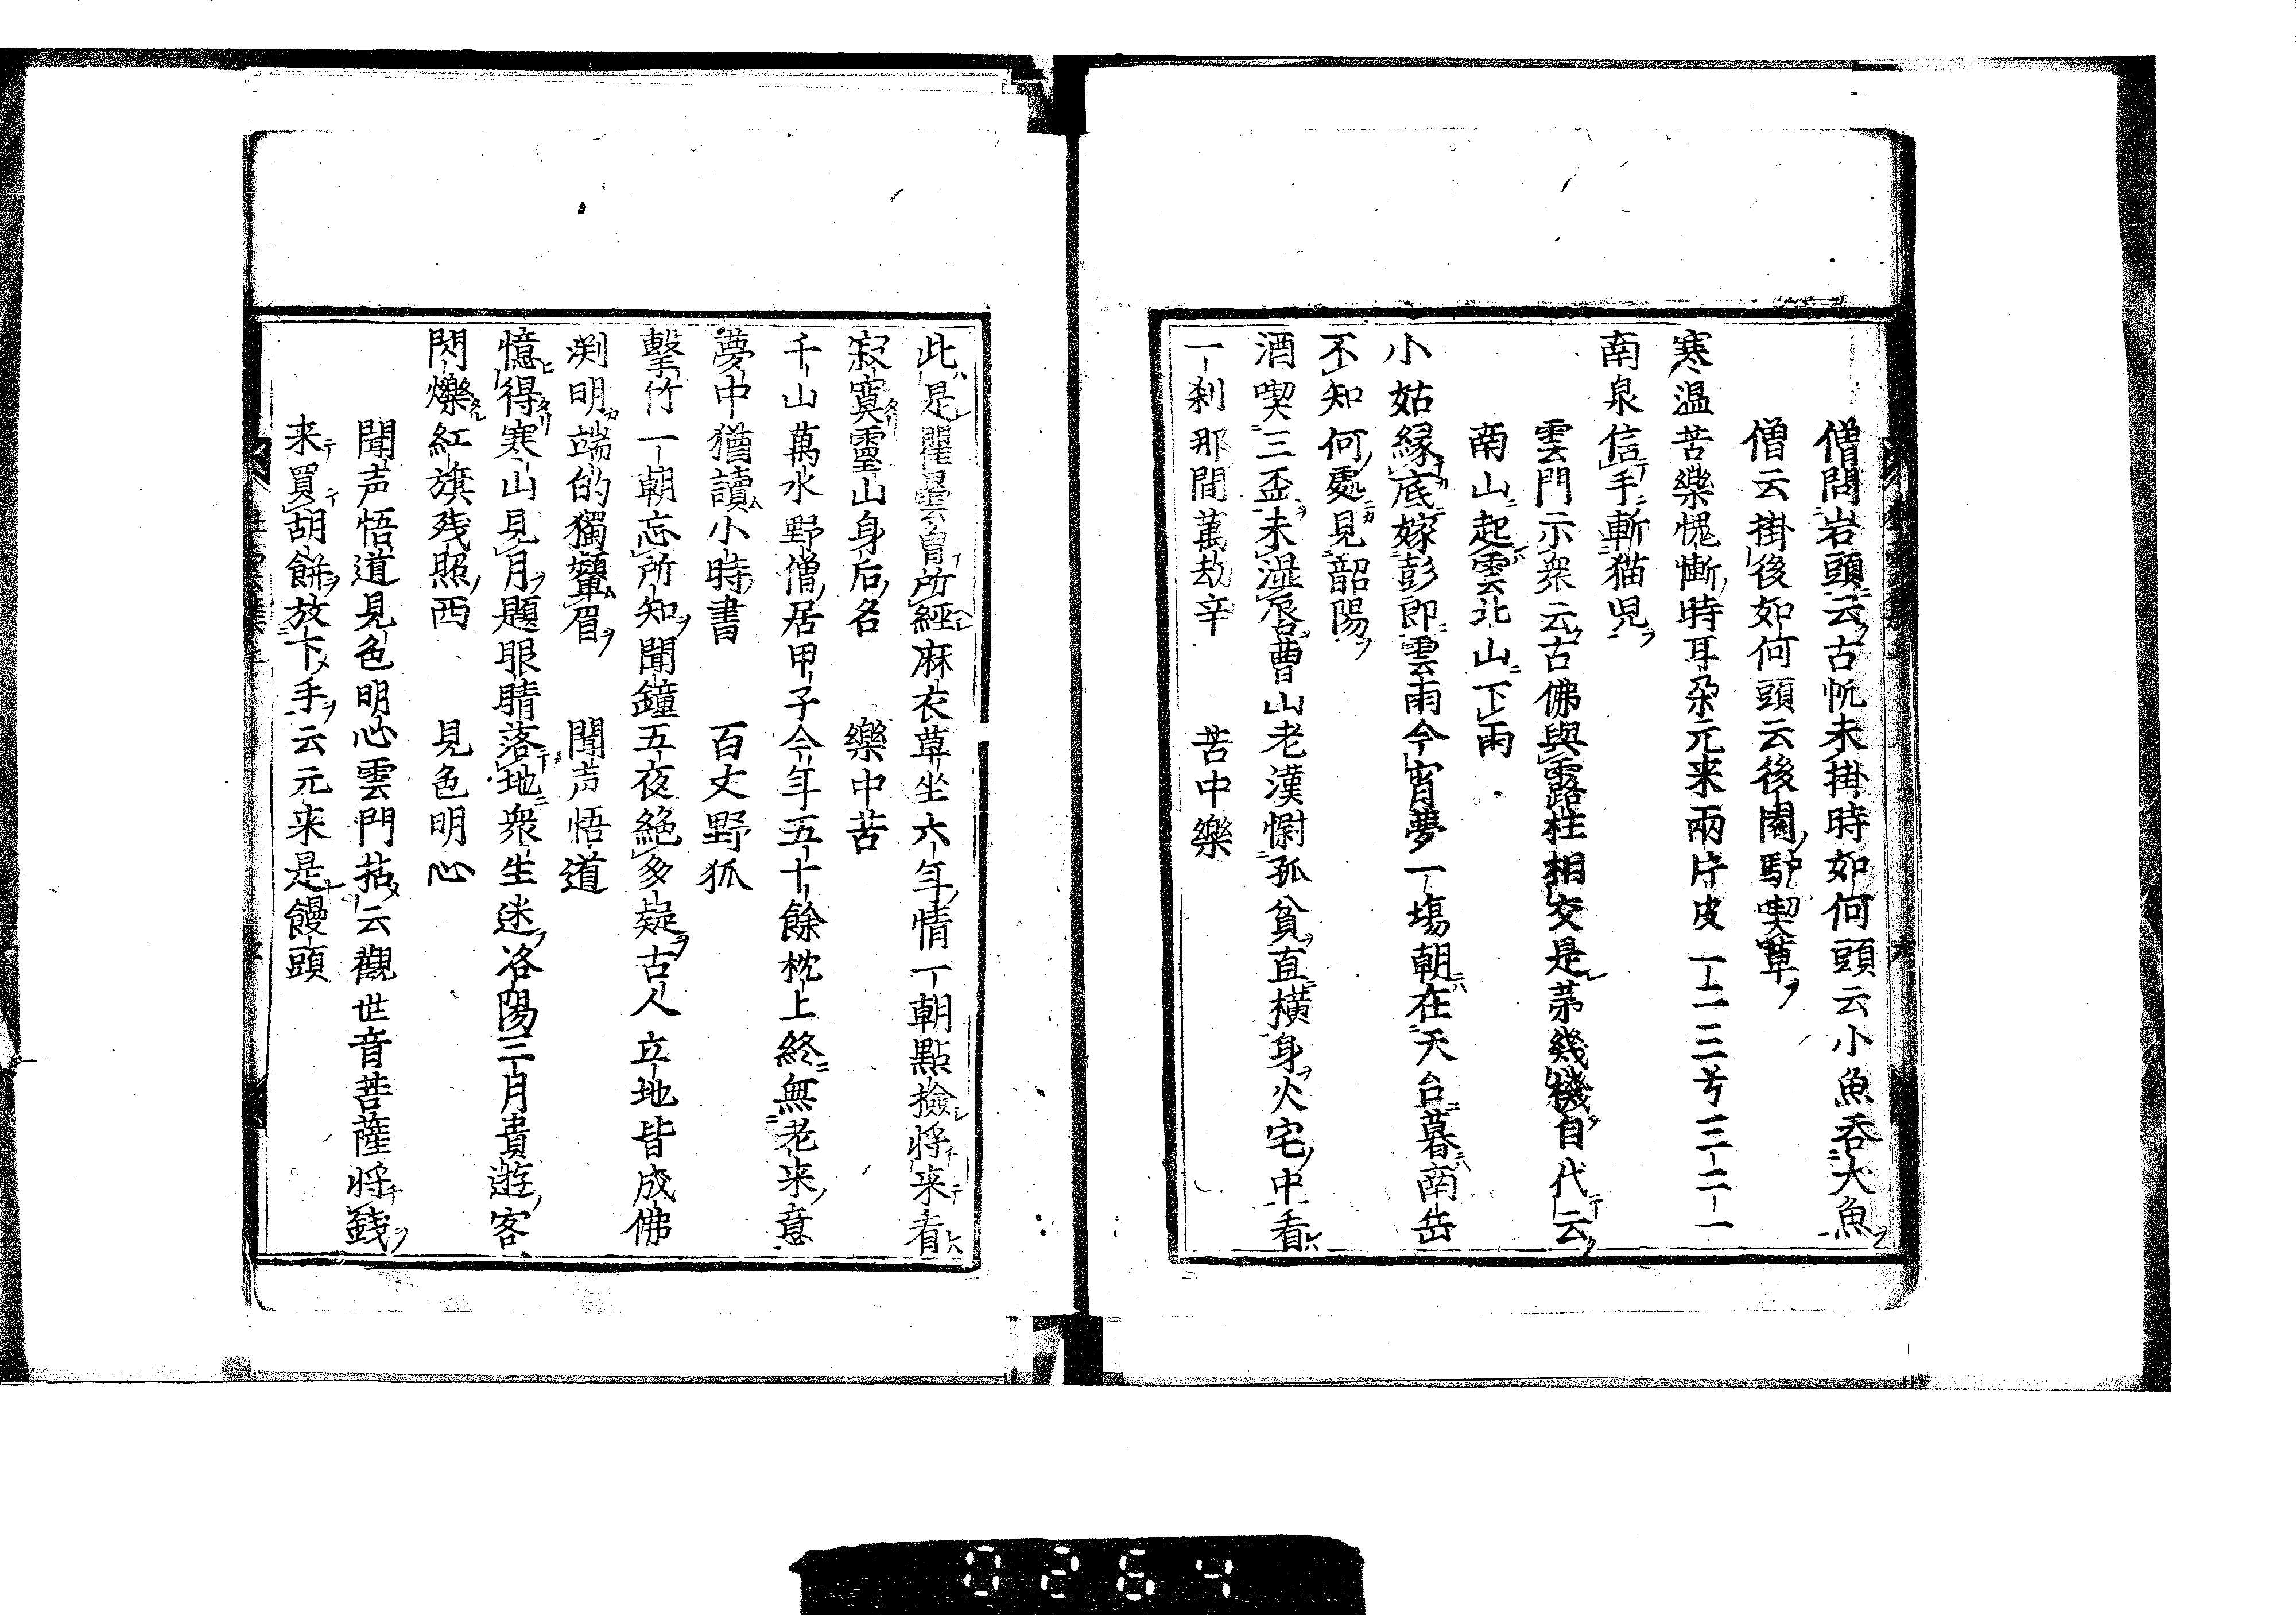 僧問岩頭云古帆未掛時如何頭云小魚吞大魚
僧云掛後如何頭云後園馿喫草
寒温苦樂愧慚時耳朶元来兩片皮一二三兮三二一
南泉信手斬猫児
雲門示衆云古佛與露柱相交是苐幾機自代云
南山起雲北山下雨
小姑縁底嫁彭郎雲雨今宵夢一塲朝在天台暮南岳
不知何處見韶陽
酒喫三盃未湿唇曹山老漢慰孤貧直橫身火宅中看
一刹那間萬劫辛　苦中樂
此是瞿曇曽所經麻衣草坐六年情一朝點撿将来看
寂寞靈山身后名　樂中苦
千山萬水野僧居甲子今年五十餘枕上終無老来意
夢中猶讀小時書　百丈野狐
擊竹一朝忘所知聞鐘五夜絶多疑古人立地皆成佛
渕明端的獨顰眉　聞声悟道
憶得寒山見月題眼睛落地衆生迷洛陽三月貴遊客
閃爍紅旗残照西　見色明心
聞声悟道見色明心雲門拈云觀世音菩薩将錢
来買胡餅放下手云元来是饅頭
0264